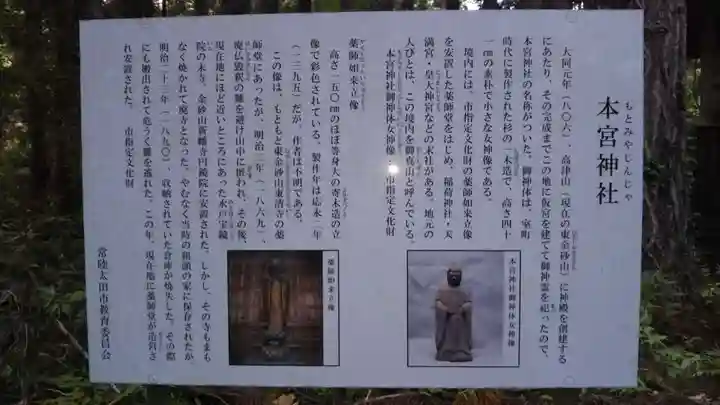 本宮神社
もとみやじんじゃ
大同元年(八〇六)、高津山(現在の東金砂山)に神殿を創建する
にあたり、その完成までこの地に仮宮を建てて御神霊を祀ったので、
本宮神社の名称がついた。御神体は、室町
時代に製作された杉の一木造で、高さ四十
一cmの素朴で小さな女神像である。
境内には、市指定文化財の薬師如来立像
を安置した薬師堂をはじめ、稲荷神社・天
満宮・皇大神宮などの末社がある。地元の
人びとは、この境内を御真山と呼んでいる。
本宮神社御神体女神像 市指定文化財
薬師如来立像
高さ一五〇cmのほぼ等身大の寄木造の立
像で彩色されている。製作年は応永二年
(一三九五)だが、作者は不明である。
この像は、もともと東金砂山東清寺の薬
師堂にあったが、明治二年(一八六九)、
廃仏毀釈の難を避け山中に匿われ、その後、
現在地にほど近いところにあった水戸宝鏡
院の末寺、金砂山新幡寺円鏡院に安置された。しかし、その寺もまも
なく焼かれて廃寺となった。やむなく当時の組頭の家に保存されたが
明治二十三年(一八九〇)、収納されていた倉庫が焼失した。その際
にも搬出されて危うく難を逃れた。この年、現在地に薬師堂が造営さ
れ安置された。 市指定文化財
常陸太田市教育委員会
本宮神社御神体女神像
薬師如来立像